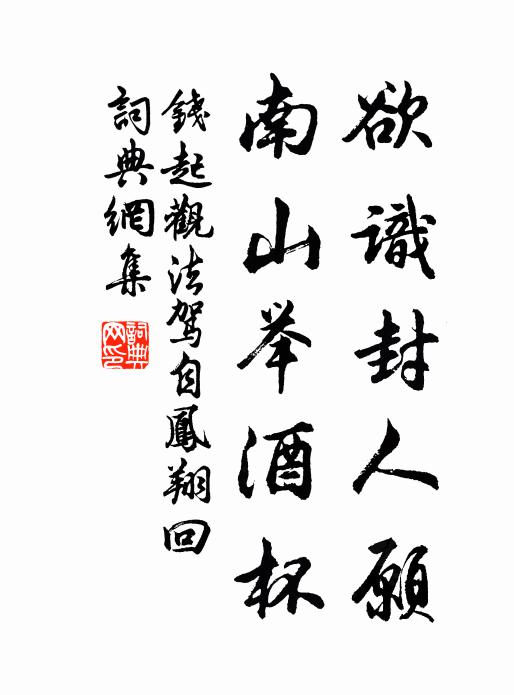 欲識封人願
南山举酒杯
錢起觀法駕自鳳翔回
詞典網集
詞典
网印